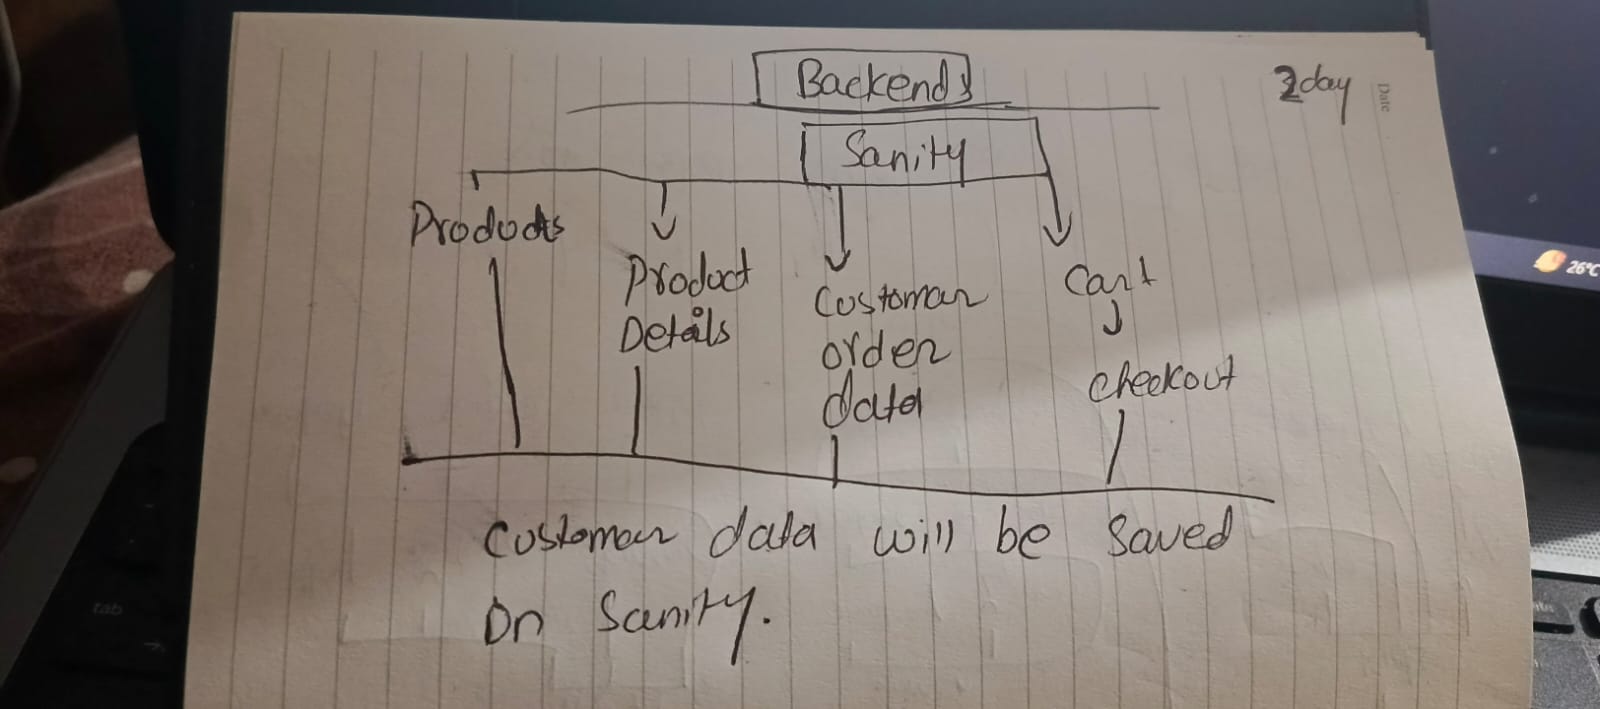 Backend
2day
Date
Sanity
Products
Product
Details
Customer
order
data
Cart
checkout
Customer data will be saved
On Sanity.
26°C
tab